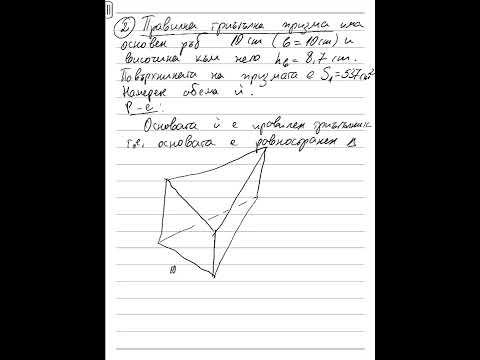 ② Правилна триъгълна призма има
основен ръб 10 cm (b = 10 cm) и
височина към него h_b = 8,7 cm.
Повърхнината на призмата е S₁ = 537 cm²
Намерек обема ѝ.
Р-е:
Основата ѝ е правилен триъгълник
т.е. основата е равностранен Δ
10